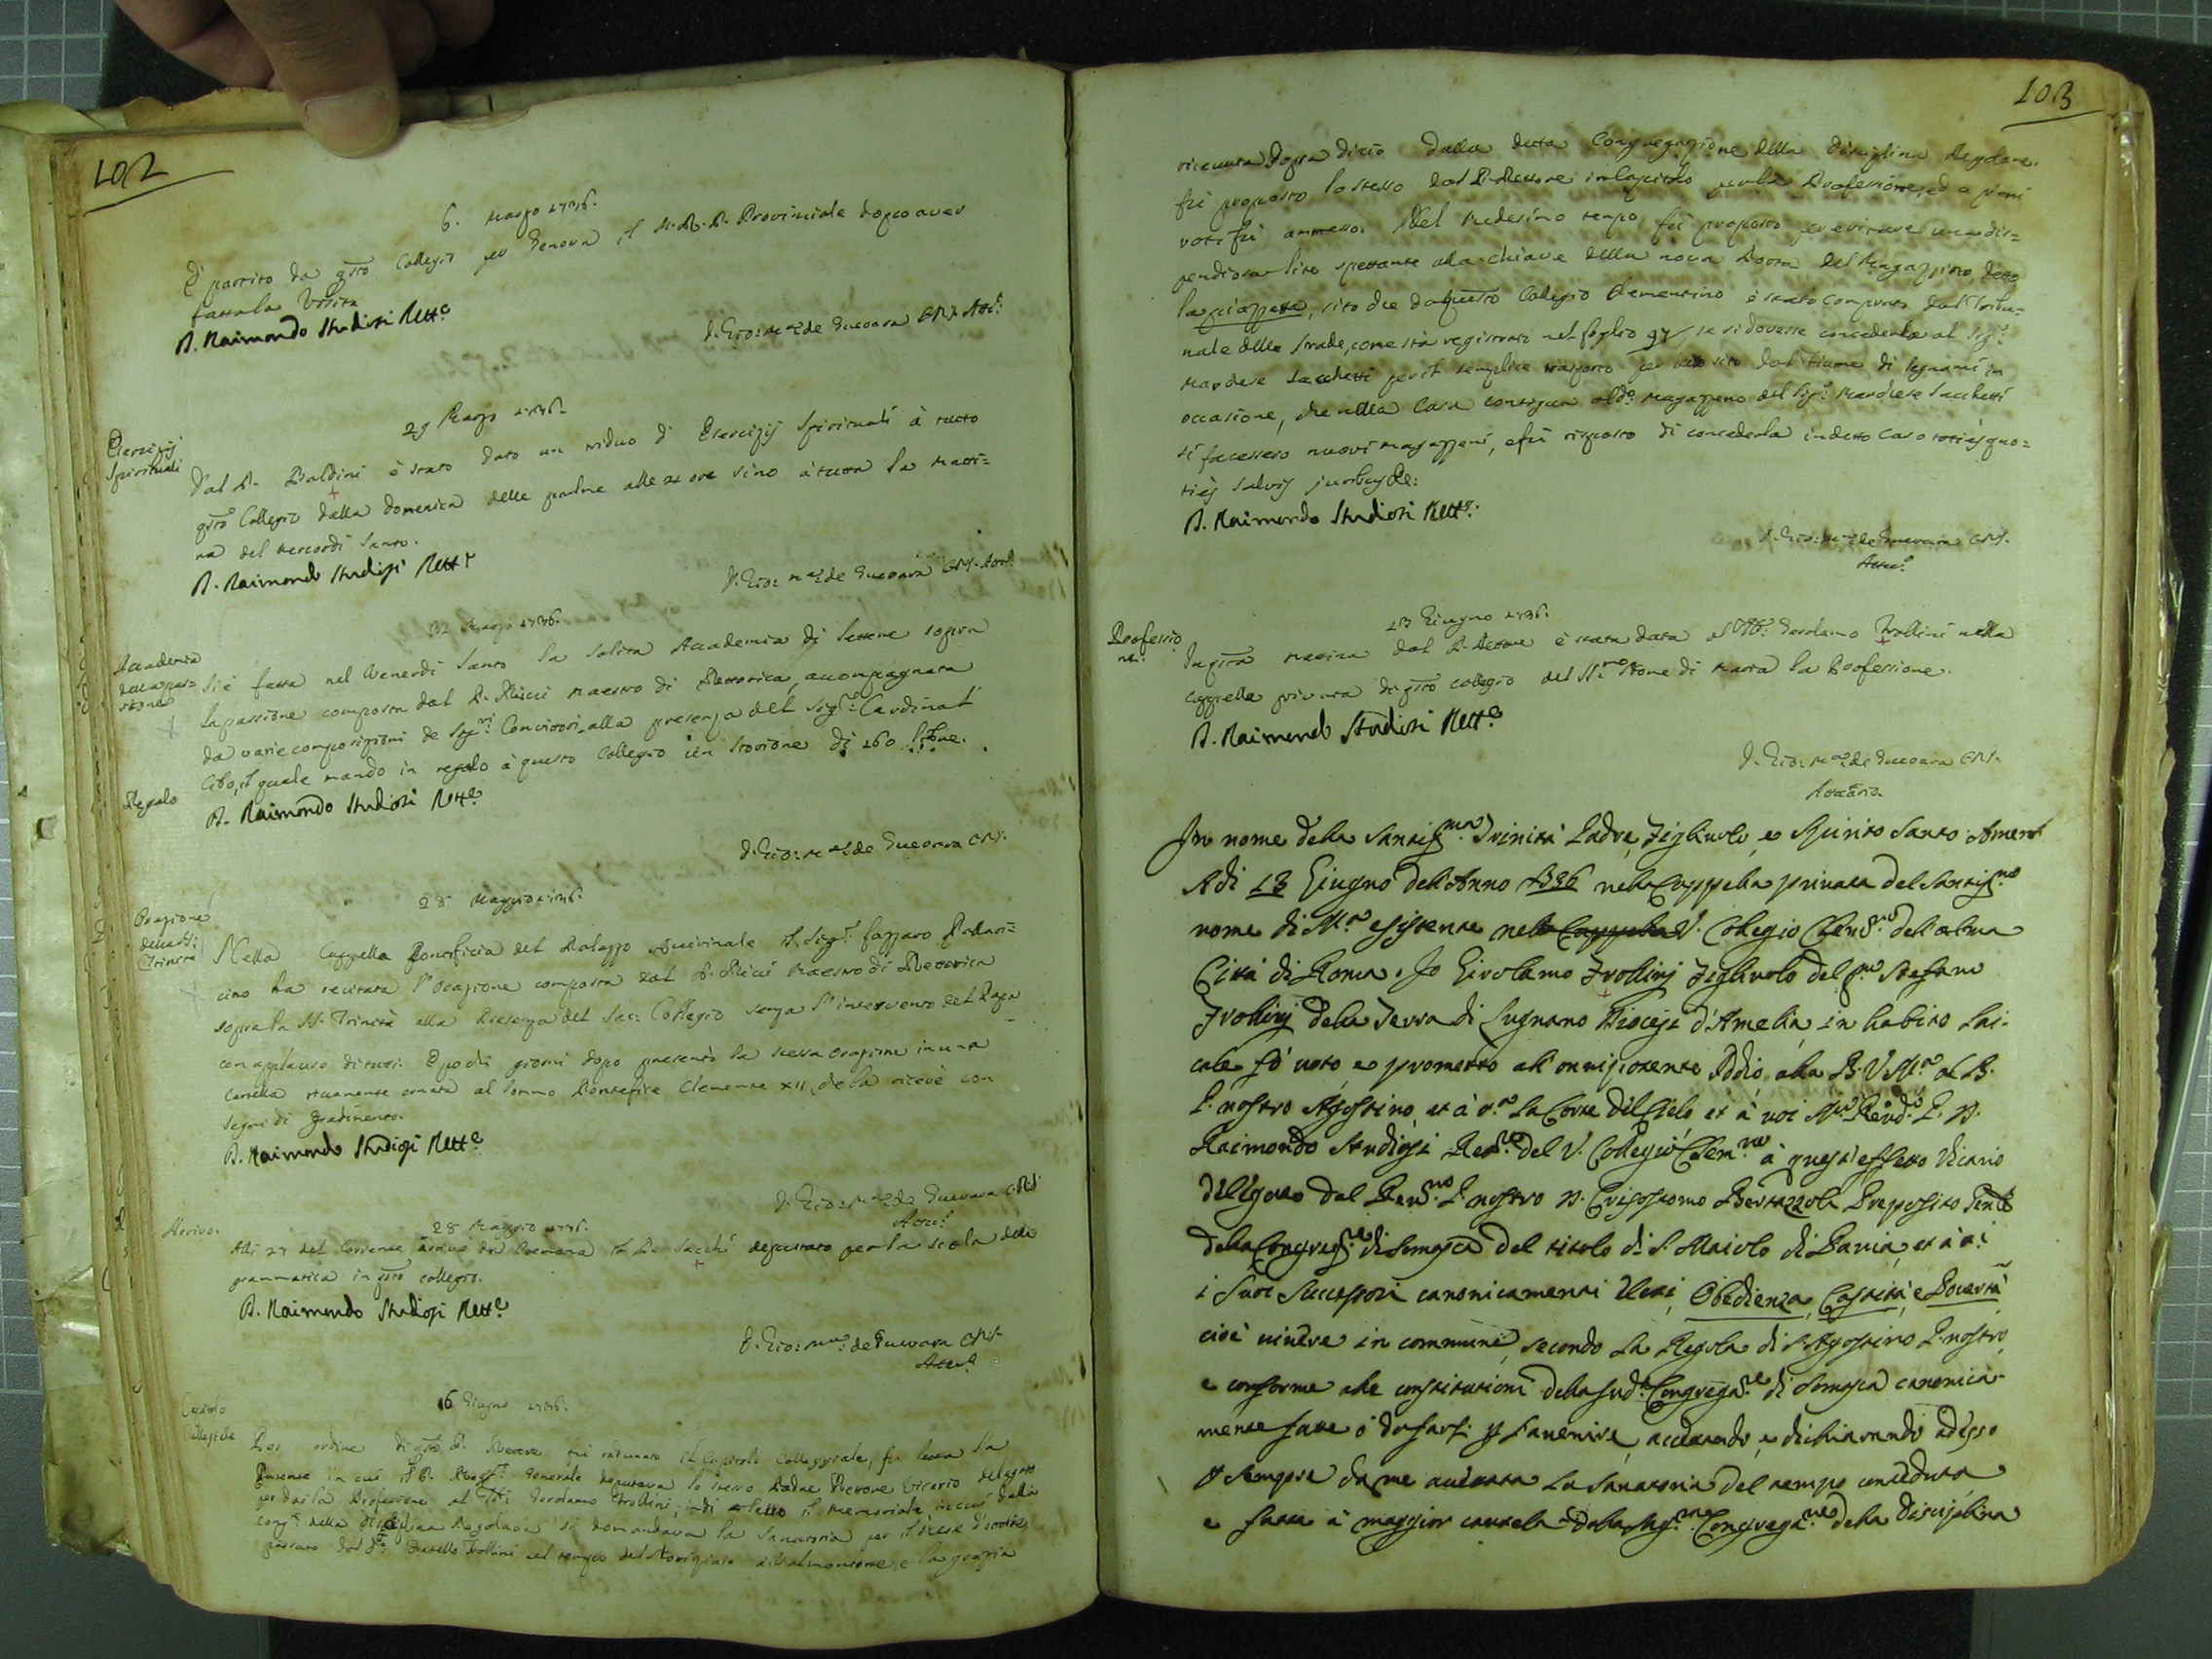 102
6. Marzo 1736.
È partito da qsto Collegio per Genova il M. R. P. Provinciale dopo aver
fatta la Visita
D. Raimondo Studiosi Rett.e
D. Gio: M.a de Guevara CRS. Att.o
29 Marzo 1736.
Esercizij
Spirituali
Dal P. Baldini è stato dato un triduo d' Esercizij Spirituali à tutto
qsto Collegio dalla Domenica delle palme alle 21 ore sino à tutta la matti=
na del Mercordì Santo.
D. Raimondo Studiosi Rett.e
D. Gio: M.a de Guevara CRS. Att.o
31 Marzo 1736.
Accademia
della pas=
sione
Si è fatta nel Venerdì Santo la solita Accademia di lettere sopra
la passione composta dal P. Ricci Maestro di Rettorica, accompagnata
da varie composizioni de Sig.ri Convittori, alla presenza del Sig.r Cardinal
Cibo, il quale mandò in regalo à questo Collegio un Storione di 160 libre.
Regalo
D. Raimondo Studiosi Rett.e
D. Gio: M.a de Guevara CRS.
28 Maggio 1736.
Orazione
della SS:
Trinità
Nella Cappella Pontificia del Palazzo Quirinale il Sig.r Lazzaro Pallavi=
cino ha recitata l'Orazione composta dal P. Ricci Maestro di Rettorica
sopra la SS. Trinità alla presenza del Sac: Collegio senza l'intervento del Papa
con applauso di tutti. E pochi giorni dopo presentò la stessa orazione in una
cartella riccamente ornata al Sommo Pontefice Clemente XII, che la ricevè con
segni di gradimento.
D. Raimondo Studiosi Rett.e
D. Gio: M.a de Guevara CRS
Att.o
28 Maggio 1736.
Arrivo.
Alli 27 del Corrente arrivò da Cremona il P. Sacchi deputato per la scola della
grammatica in qsto collegio.
D. Raimondo Studiosi Rett.e
D. Gio: M.a de Guevara CRS
Att.o
6 Giugno 1736.
Capitolo
Collegiale
Per ordine di qsto P. Rettore fù radunato il Capitolo Collegiale, fu letta la
Patente in cui il P. Prep.to Generale deputava lo stesso Padre Rettore Vicario delegato
per dar la Professione al Gerolamo Trollini; indi letto il memoriale in cui dalla
Cong.e della Disciplina Regolare si domandava la Sanatoria per il mese d'ottobre
passato dal d.o Fratello Trollini nel tempo del Noviziato, e la grazia
103
ricevuta sopra di ciò dalla detta Congregazione della disciplina Regolare.
fù proposto lo stesso dal P. Rettore in Capitolo per la Professione, ed a pieni
voti fù ammesso. Nel medesimo tempo fù proposto per evitare una dis=
pendiosa lite spettante alla chiave della nova Porta del Magazzino, detto
la piazzetta, sito che da questo Collegio Clementino è stato comprato dal Tribu=
nale delle Strade, come stà registrato nel foglio 97, se si dovesse concederla al Sig.r
Marchese Sacchetti per il semplice trasporto per detto sito dal fiume di legnami in
occasione, che nella Casa contigua al d.o Magazzeno del Sig.r Marchese Sacchetti
si facessero nuovi magazzeni, e fù risposto di concederla in detto caso toties quo=
ties salvis juribus &c:
D. Raimondo Studiosi Rett.e
D. Gio: M.a de Guevara CRS.
Att.o
13 Giugno 1736.
Professio
ne.
In qsta mattina dal P. Rettore è stata data al Gerolamo Trollini nella
cappella privata di qsto collegio del SS.mo Nome di Maria la Professione.
D. Raimondo Studiosi Rett.e
D. Gio: M.a de Guevara CRS.
Attuario.
In nome della Santiss.ma Trinità Padre, Figliuolo, e Spirito Santo Amen
A di 13 Giugno dell'Anno 1736 nella Cappella privata del Santiss.mo
nome di M.a esistente nella Cappella V. Collegio Clem.no dell'alma
Città di Roma. Io Girolamo Trollinj Figliuolo del qm Stefano
Trollinj della Terra di Lugnano Diocesi d'Amelia in habito lai=
cale fò voto, e prometto all'onnipotente Iddio, alla B. V. M.a al B.
P. nostro Agostino, et à t.a la Corte del Cielo et à voi M.to Rev.do P. D.
Raimondo Studiosi Ret.re del V. Collegio Clem.no à quest'effetto Vicario
delegato dal Rev.mo P. nostro D. Crisostomo Bertazzoli Preposito Gen.le
della Congreg.ne di Somasca del titolo di S. Maiolo di Pavia, et à i
i suoi Successori canonicamente eletti, Obedienza, Castità, e Povertà
cioè vivere in commune, secondo la Regola di S. Agostino P. nostro,
e conforme alle constitutioni della sud.a Congrega.ne di Somasca canonica=
mente fatte ò da farsi p l'avenire, accettando, e dichiarando adesso
p sempre da me accettata la Sanatoria del tempo conceduta,
e fatta à maggior cautela dalla Sag.ra Congrega.ne della Disciplina